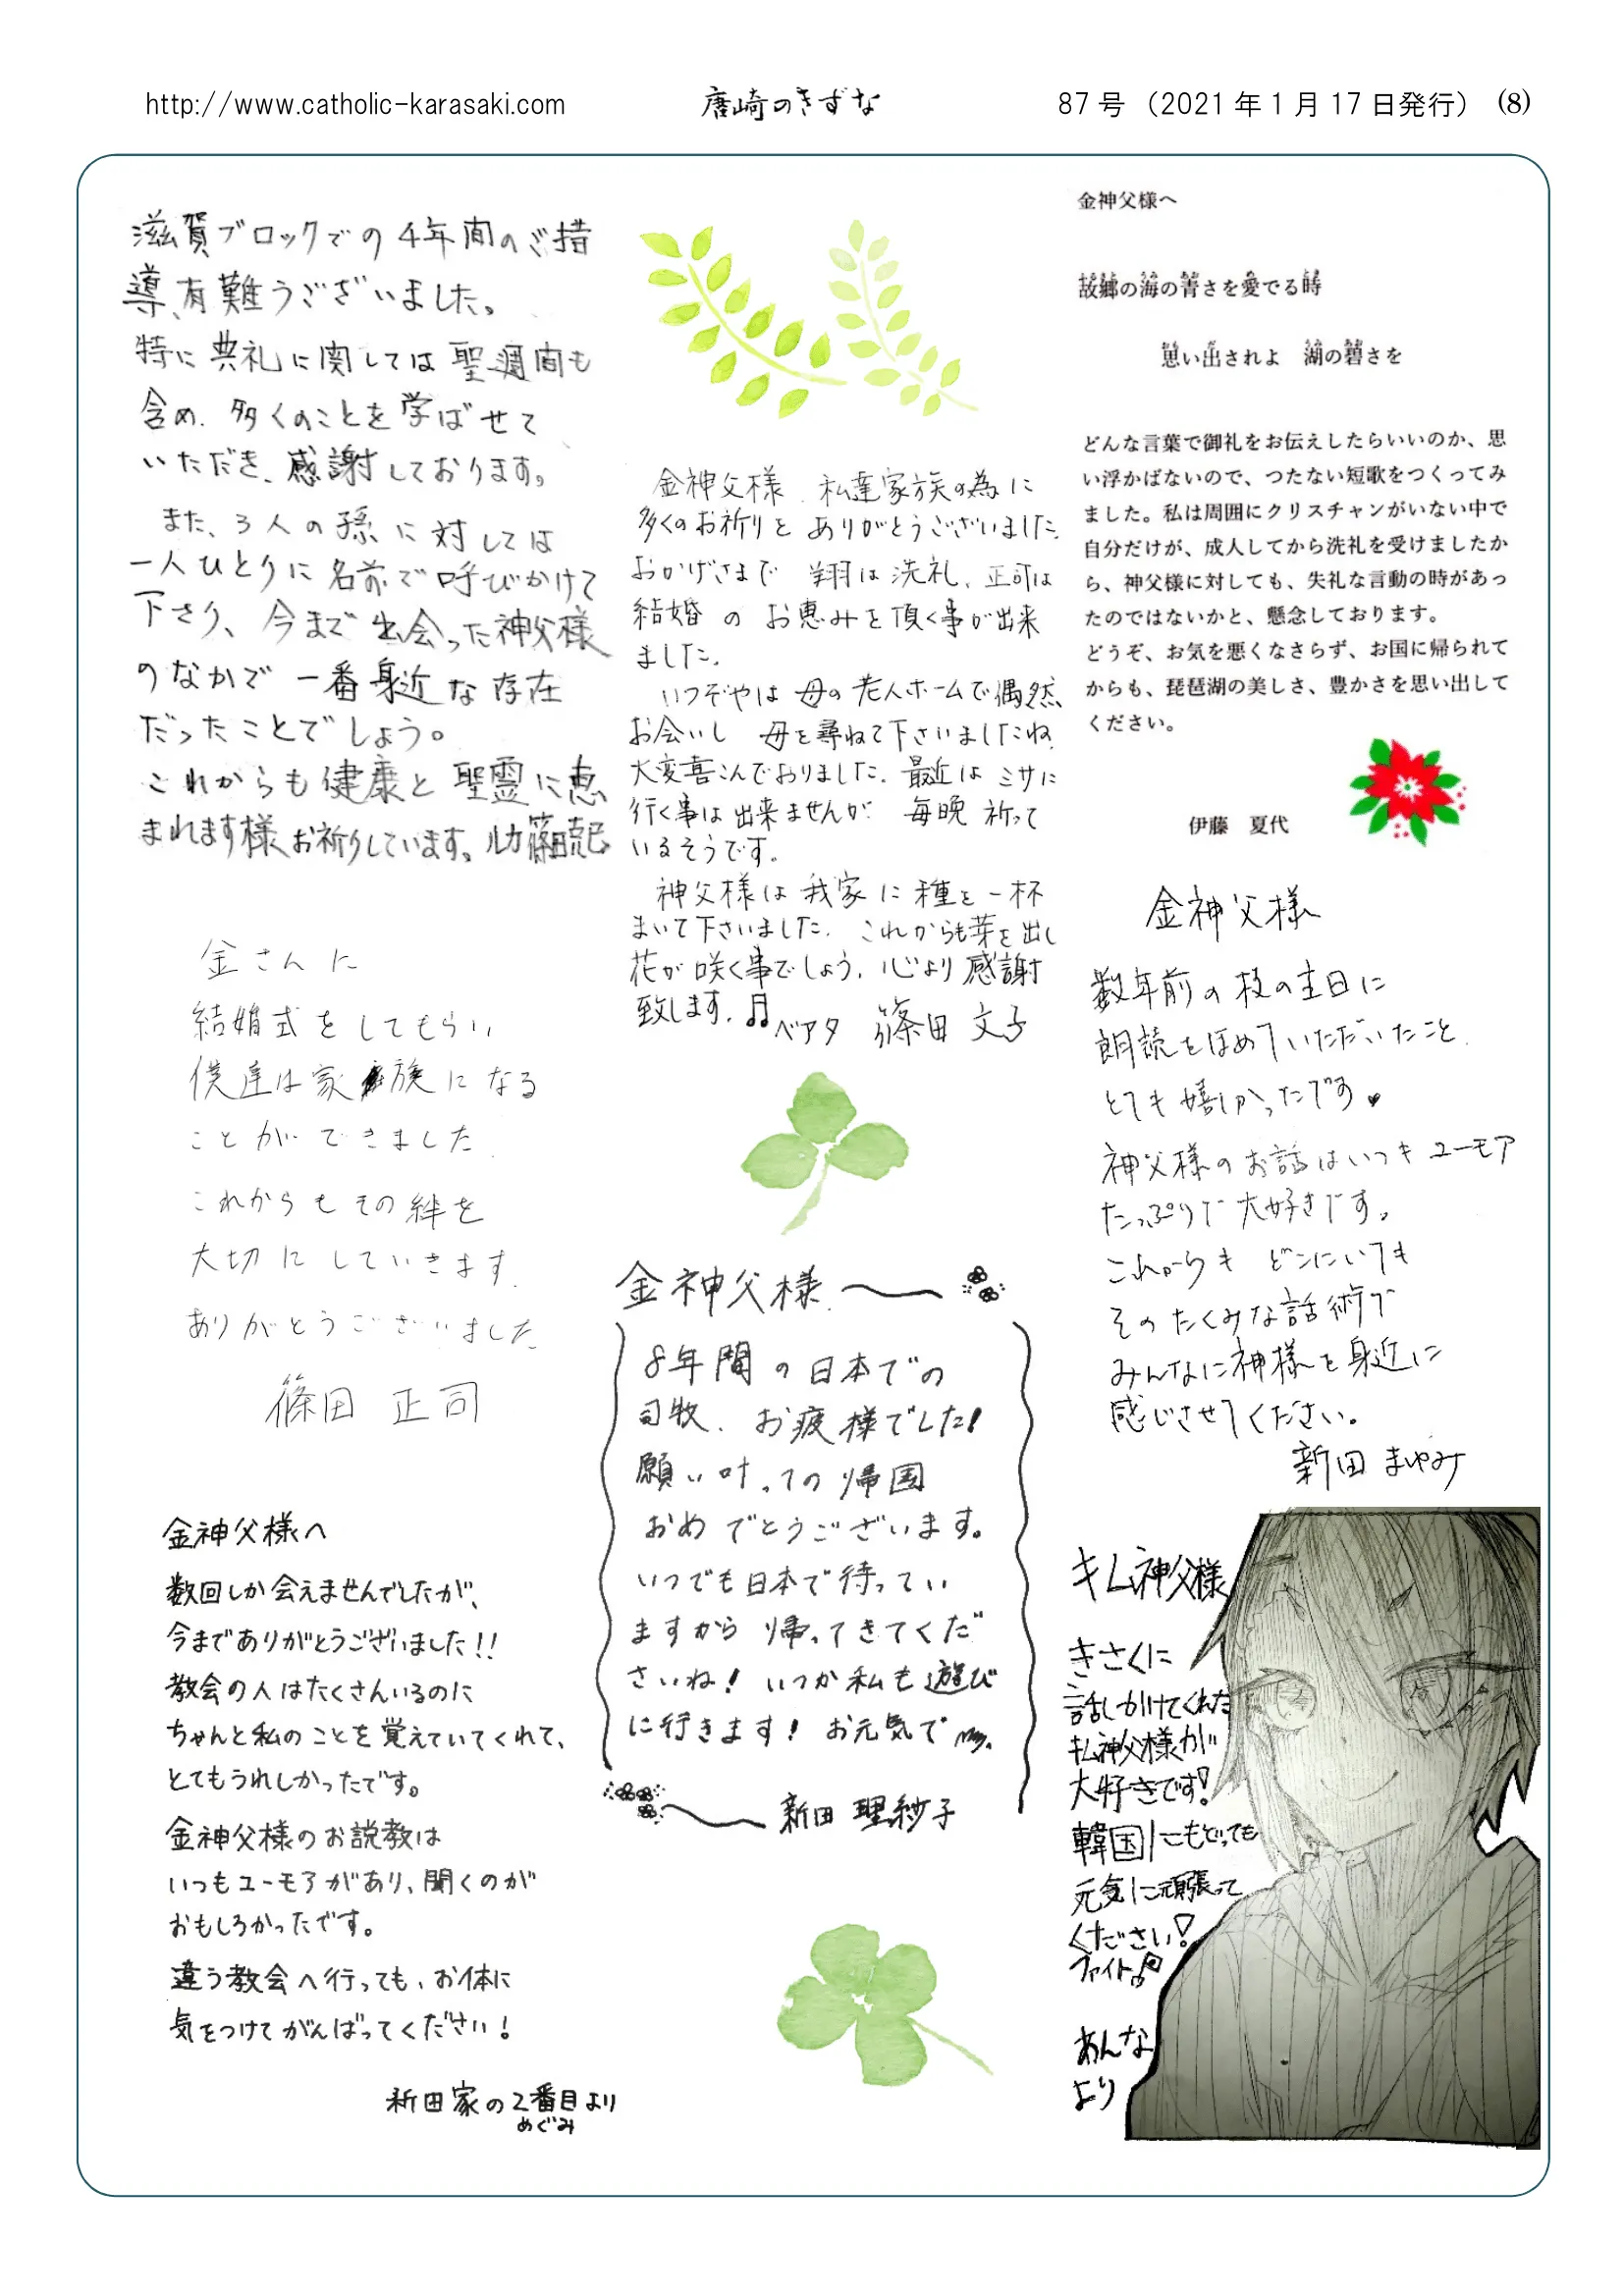 http://www.catholic-karasaki.com
唐崎のきずな
87号（2021年1月17日発行） (8)
滋賀ブロックでの4年間のご指
導、有難うございました。
特に典礼に関しては聖週間も
含め、多くのことを学ばせて
いただき、感謝しております。
また、3人の孫に対しては
一人ひとりに名前で呼びかけて
下さり、今まで出会った神父様
のなかで一番身近な存在
だったことでしょう。
これからも健康と聖霊に恵
まれます様お祈りしています。ルカ篠田
金さんに
結婚式をしてもらい
僕達は家族になる
ことができました
これからもその絆を
大切にしていきます.
ありがとうございました
篠田 正司
金神父様へ
数回しか会えませんでしたが、
今までありがとうございました!!
教会の人はたくさんいるのに
ちゃんと私のことを覚えていてくれて、
とてもうれしかったです。
金神父様のお説教は
いつもユーモアがあり、聞くのが
おもしろかったです。
違う教会へ行っても、お体に
気をつけてがんばってください!
新田家の2番目より
めぐみ
金神父様、私達家族の為に
多くのお祈りを ありがとうございました.
おかげさまで 翔は洗礼、正司は
結婚の お恵みを頂く事が出来
ました.
いつぞやは 母の老人ホームで偶然
お会いし 母を尋ねて下さいましたね.
大変喜こんでおりました. 最近はミサに
行く事は出来ませんが 毎晩 祈って
いるそうです.
神父様は我家に種を一杯
まいて下さいました. これからも芽を出し
花が咲く事でしょう. 心より感謝
致します. ♫ ベアタ 篠田 文子
金神父様
8年間の日本での
司牧、お疲様でした!
願い叶っての帰国
おめでとうございます。
いつでも日本で待ってい
ますから 帰ってきてくだ
さいね! いつか私も遊び
に行きます! お元気で
新田 理紗子
金神父様へ
故郷の海の菁さを愛でる時
思い出されよ 湖の碧さを
どんな言葉で御礼をお伝えしたらいいのか、思
い浮かばないので、つたない短歌をつくってみ
ました。私は周囲にクリスチャンがいない中で
自分だけが、成人してから洗礼を受けましたか
ら、神父様に対しても、失礼な言動の時があっ
たのではないかと、懸念しております。
どうぞ、お気を悪くなさらず、お国に帰られて
からも、琵琶湖の美しさ、豊かさを思い出して
ください。
伊藤 夏代
金神父様
数年前の枝の主日に
朗読をほめていただいたこと
とても嬉しかったです♥
神父様のお話はいつもユーモア
たっぷりで大好きです。
これからも どこにいても
そのたくみな話術で
みんなに神様を身近に
感じさせてください。
新田 まゆみ
キム神父様
きさくに
話しかけてくれた
キム神父様が
大好きです!
韓国にもどっても
元気に頑張って
ください!
ファイト♪
あんな
より